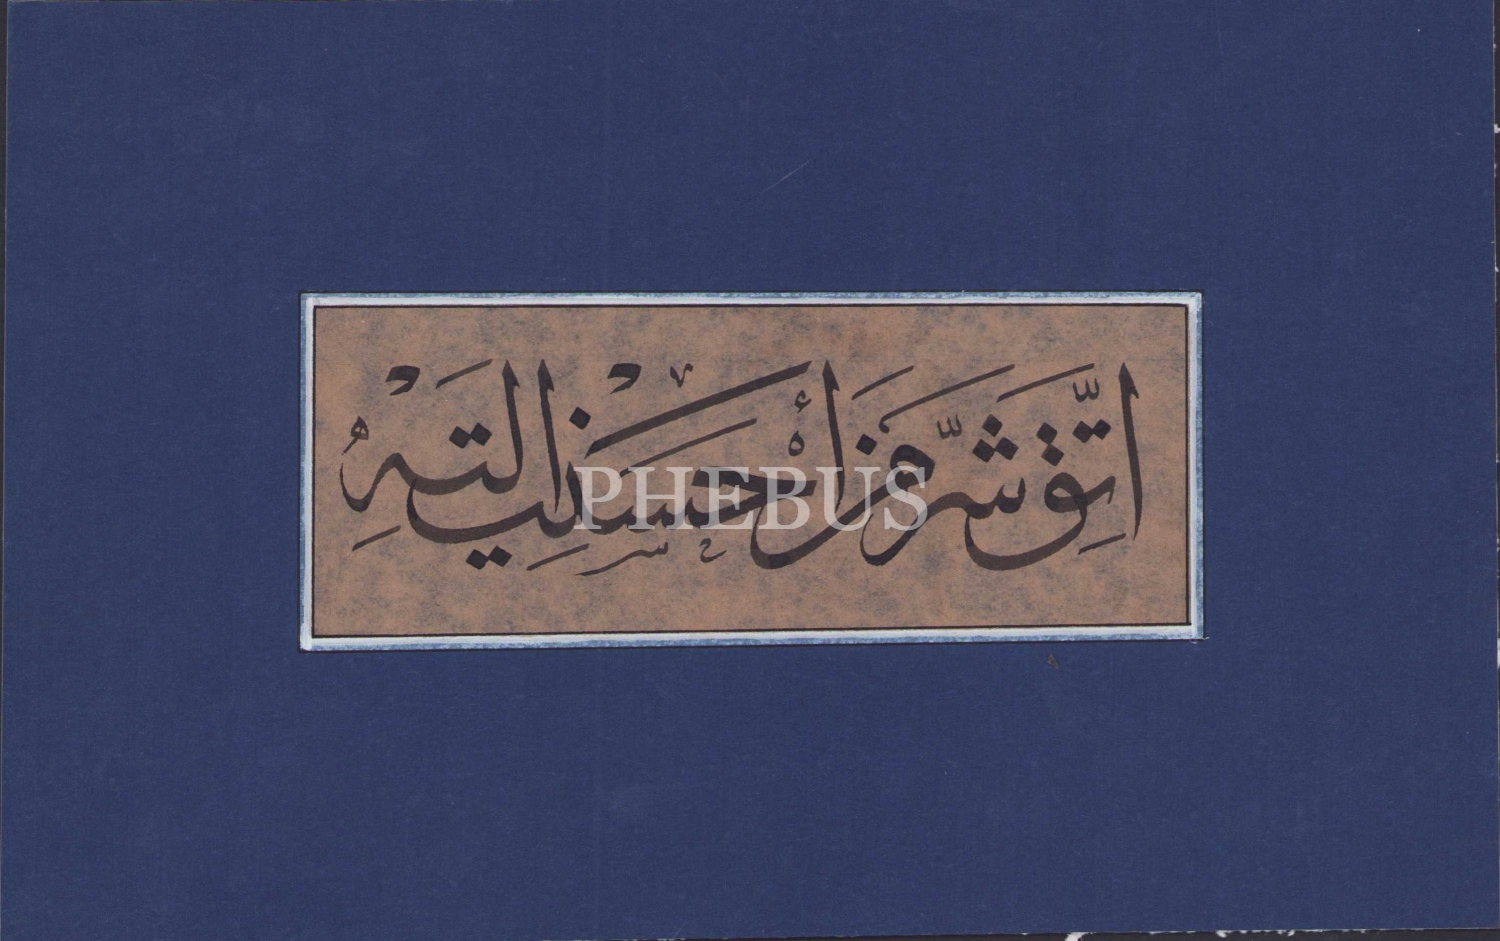 اتَّقِ شَرَّ مَنْ أَحْسَنْتَ إِلَيْهِ
PHEBUS